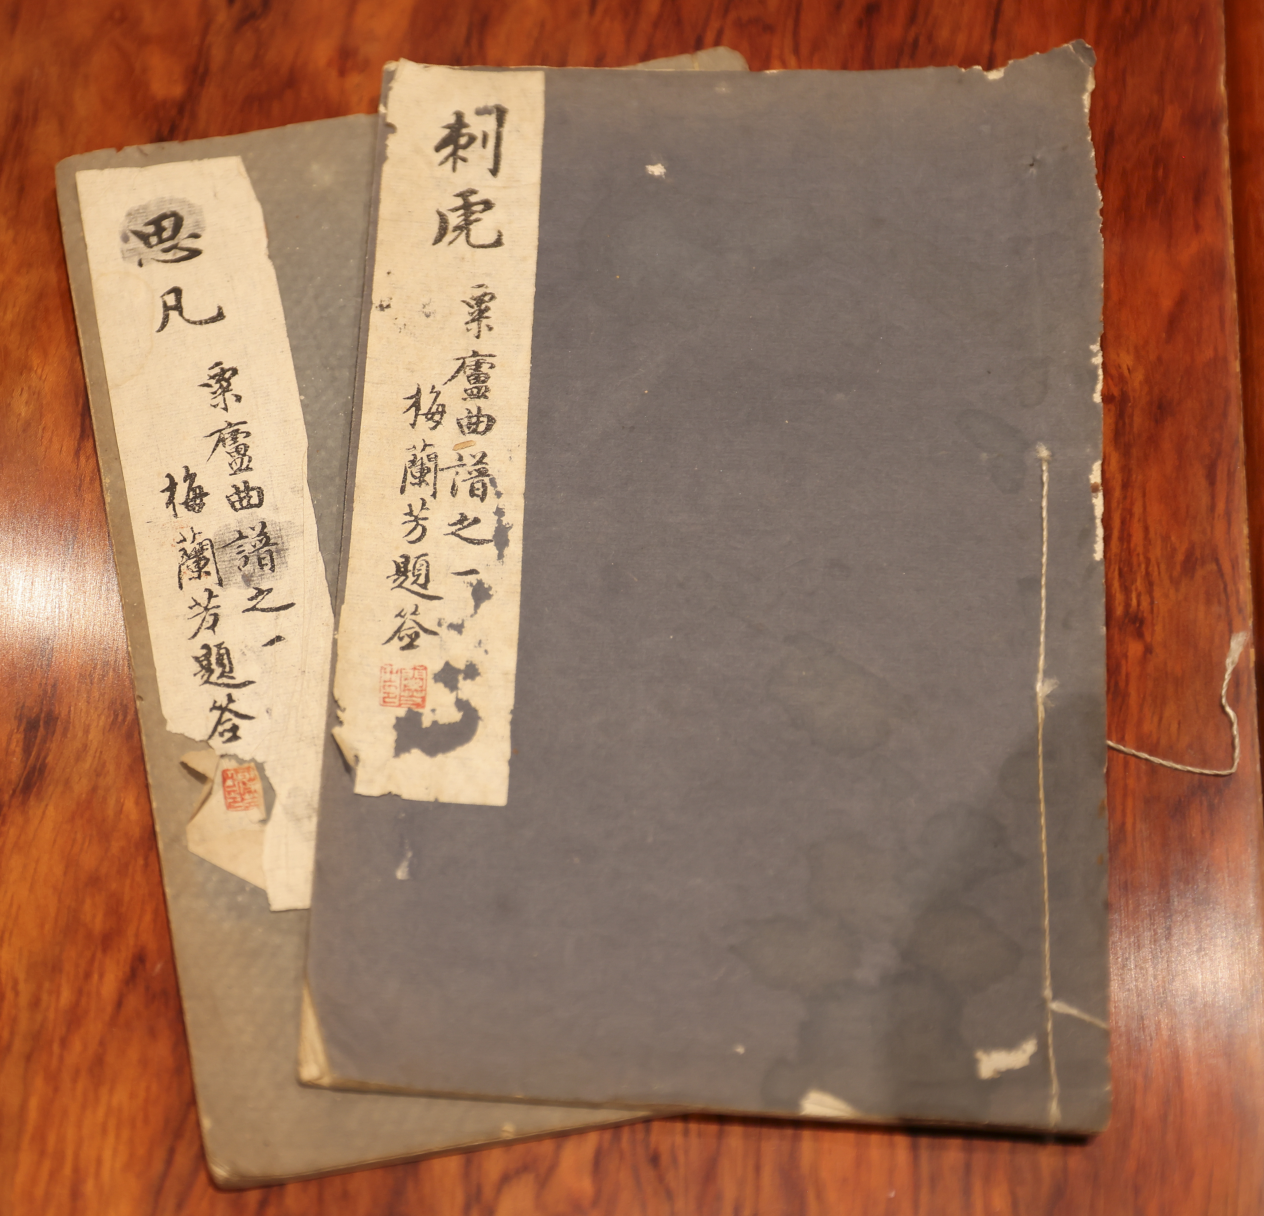 刺虎
粟廬曲譜之一
梅蘭芳題签
思凡
粟廬曲譜之一
梅蘭芳題签